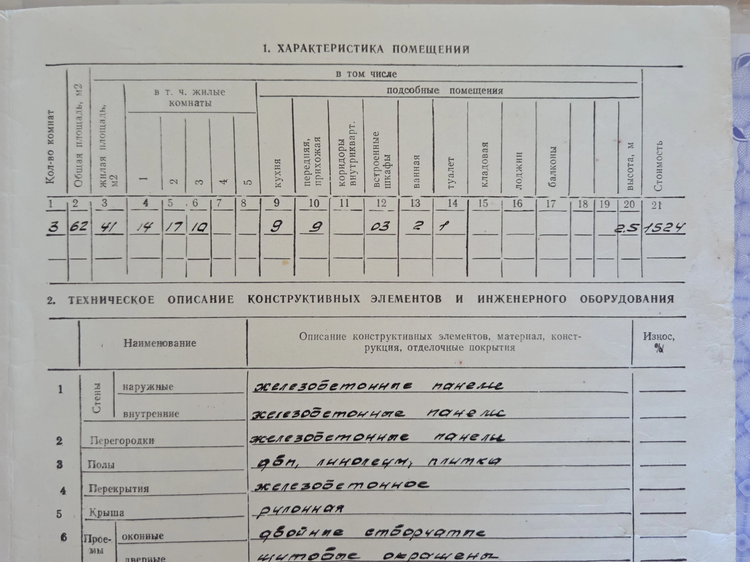 1. ХАРАКТЕРИСТИКА ПОМЕЩЕНИЙ
в том числе
в т. ч. жилые комнаты
подсобные помещения
Кол-во комнат
Общая площадь, м2
жилая площадь, м2
1
2
3
4
5
кухня
передняя, прихожая
коридоры внутрикварт.
встроенные шкафы
ванная
туалет
кладовая
лоджии
балконы
высота, м
Стоимость
1 2 3 4 5 6 7 8 9 10 11 12 13 14 15 16 17 18 19 20 21
3 62 41 14 17 10 9 9 03 2 1 2.5 1524
2. ТЕХНИЧЕСКОЕ ОПИСАНИЕ КОНСТРУКТИВНЫХ ЭЛЕМЕНТОВ И ИНЖЕНЕРНОГО ОБОРУДОВАНИЯ
Наименование
Описание конструктивных элементов, материал, конст-
рукция, отделочные покрытия
Износ, %
1 Стены наружные железобетонные панели
внутренние железобетонные панели
2 Перегородки железобетонные панели
3 Полы двп, линолеум, плитка
4 Перекрытия железобетонное
5 Крыша рулонная
6 Прое-
мы
оконные двойные створчатые
дверные щитовые окрашены